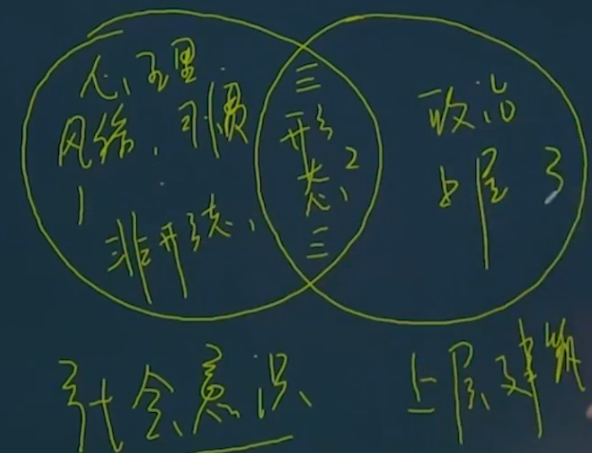 心理
风俗、习惯
1
非形态
三
形
态 2
三
政治
上层 3
社会意识
上层建筑